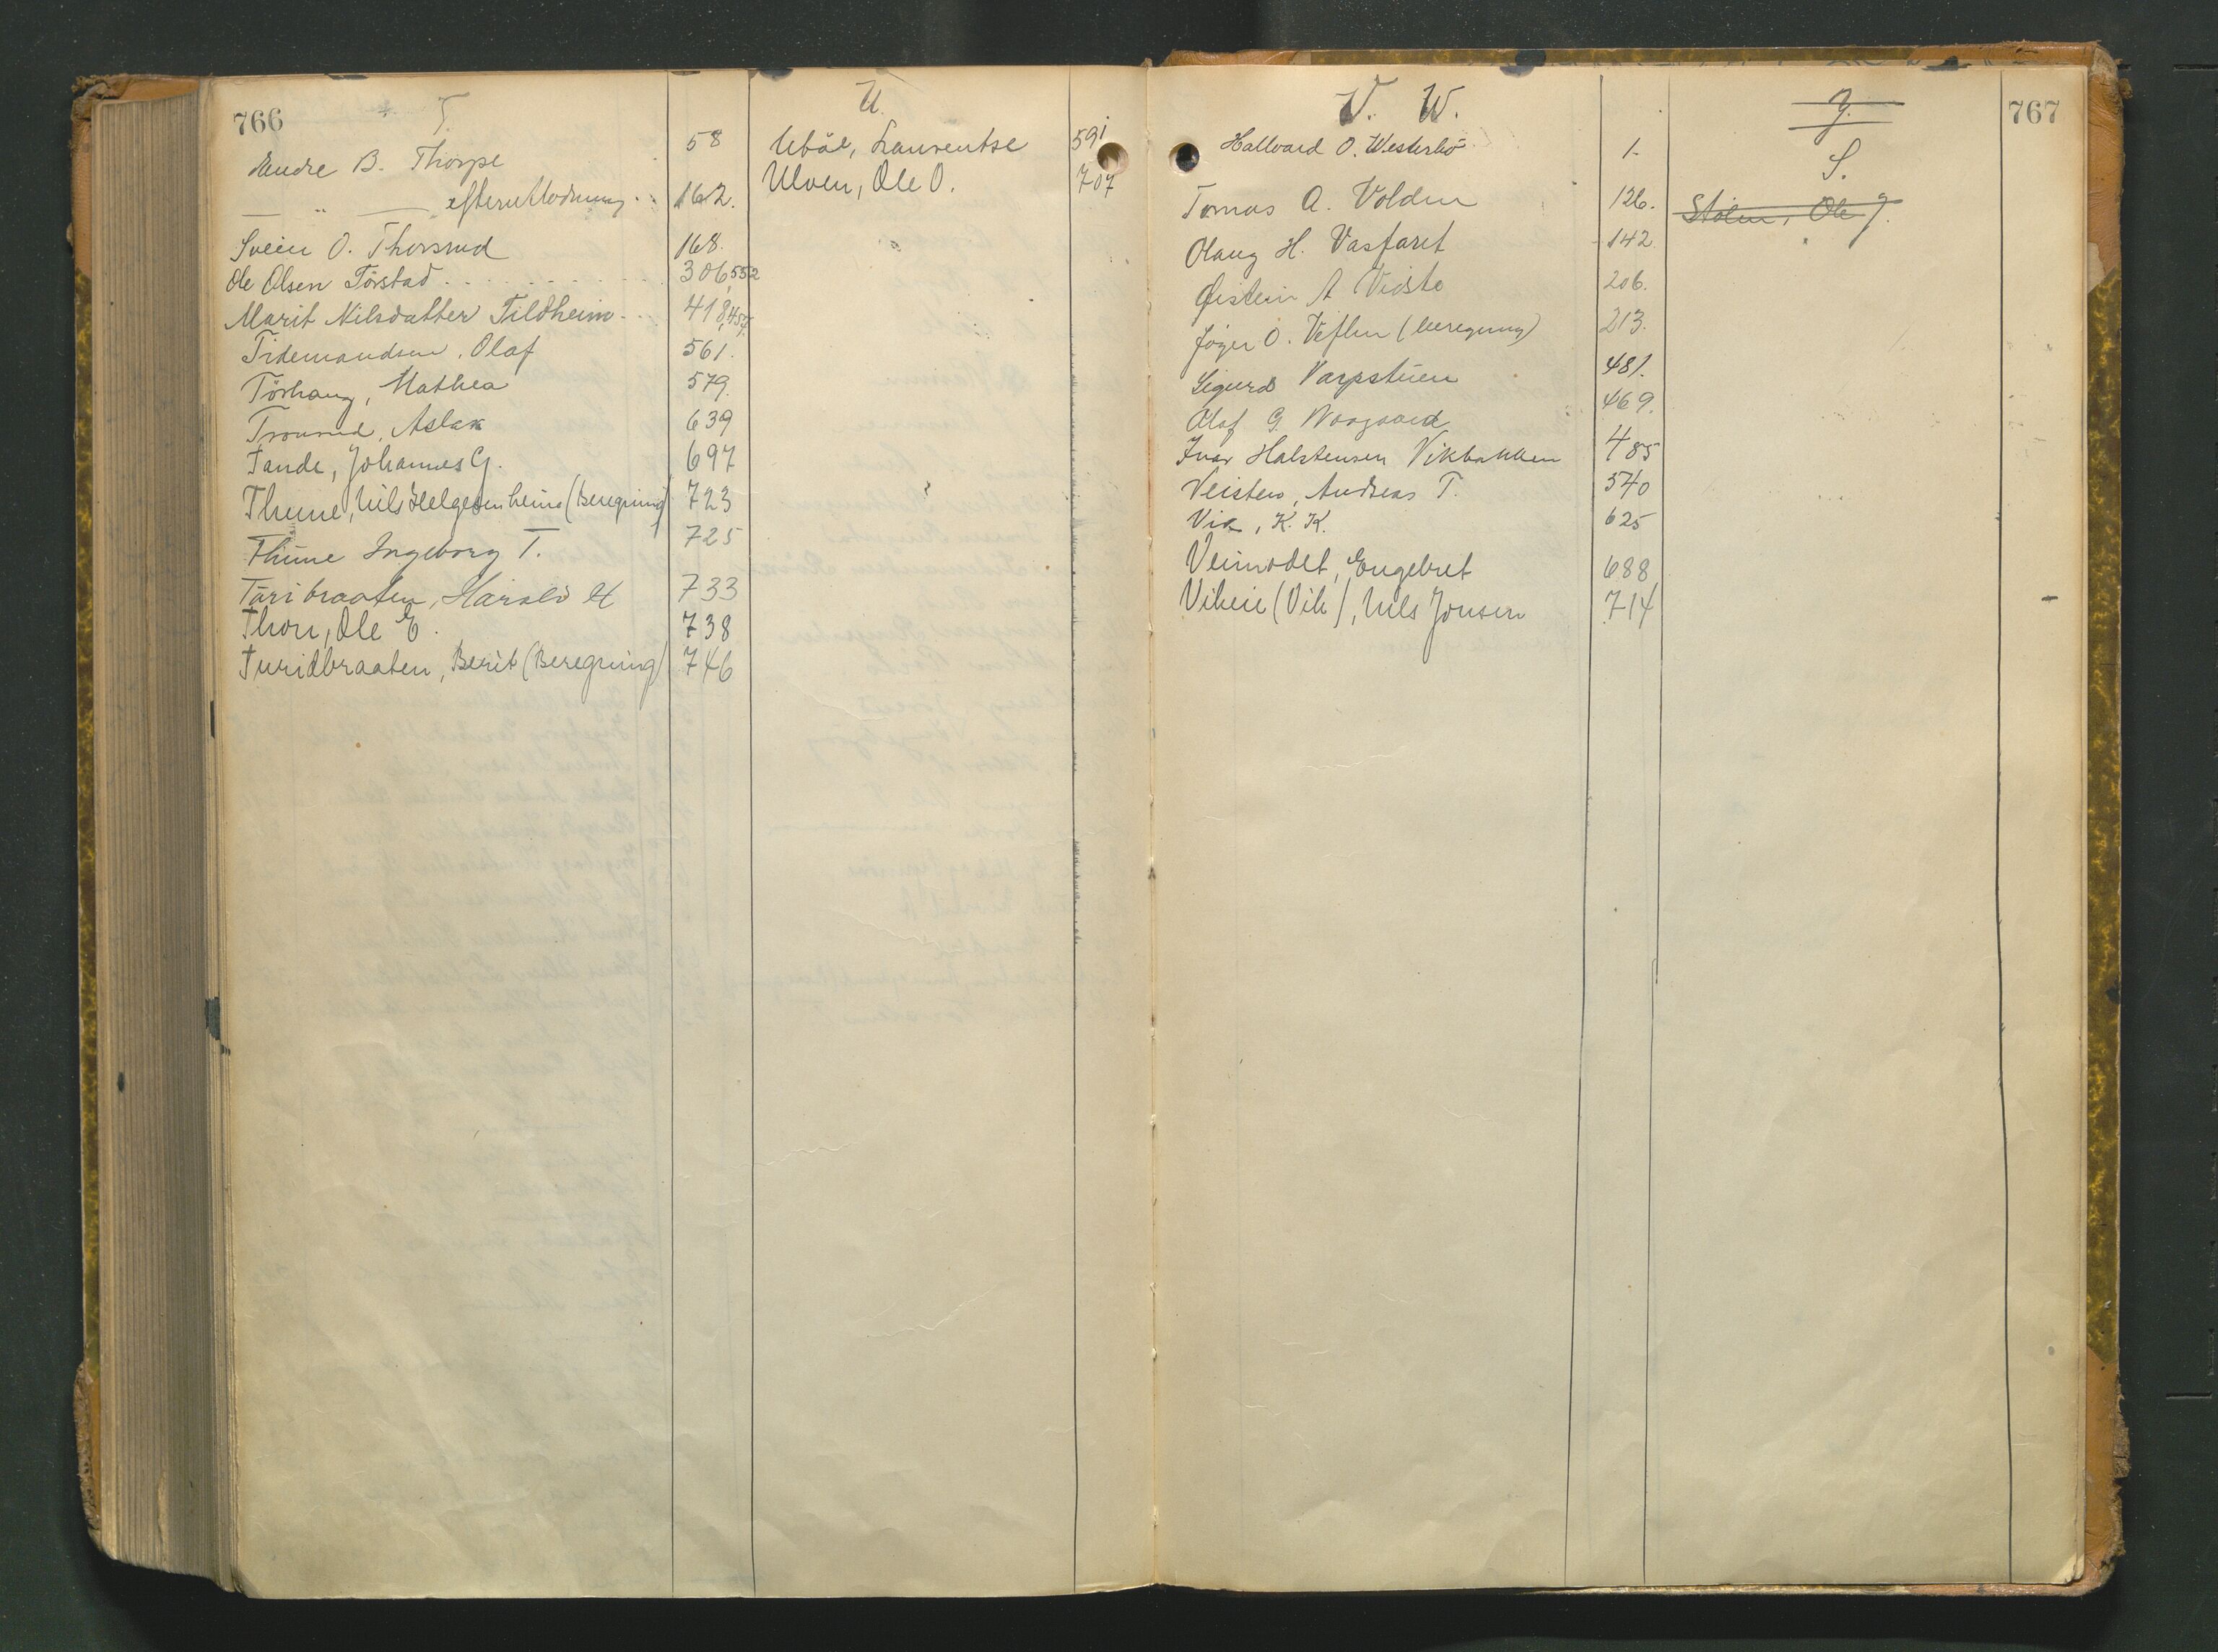 766
T.
Endre B. Thorpe 58
— " — efterutlodning . . 162.
Svein O. Thorsrud 168.
Ole Olsen Törstad . . . . . . . . 306, 552
Marit Nilsdatter Tildheim . . . 418, 457.
Tidemandsen, Olaf 561.
Törhaug, Mathea 579.
Aslak 639
Tande, Johannes G. 697
Thune, Nils Helgesen Leine (Beregning) 723
Thune Ingeborg T. 725
Turibraaten, Harald H 733
Thon, Ole E. 738
Turidbraaten, Berit (Beregning) 746
U.
Uböe, Laurentse 591
Ulven, Ole O. 707
V. W.
Hallvard O. Westerbö 1.
Tomas A. Volden 126.
Olaug H. Vasfaret 142
Øistein A Vidste 206.
O. Veflen (beregning) 213.
Sigurd Varpstuen 481.
Olaf G. Worgaard 469.
Ivar Halstensen Vikbakken 485
Veisten, Andreas T. 540
Vik, K. K. 625
Veimodet, Engebret 688
Vikeie (Vik), Nils Jonsen 714
767
Y.
S.
Stölen, Ole J.